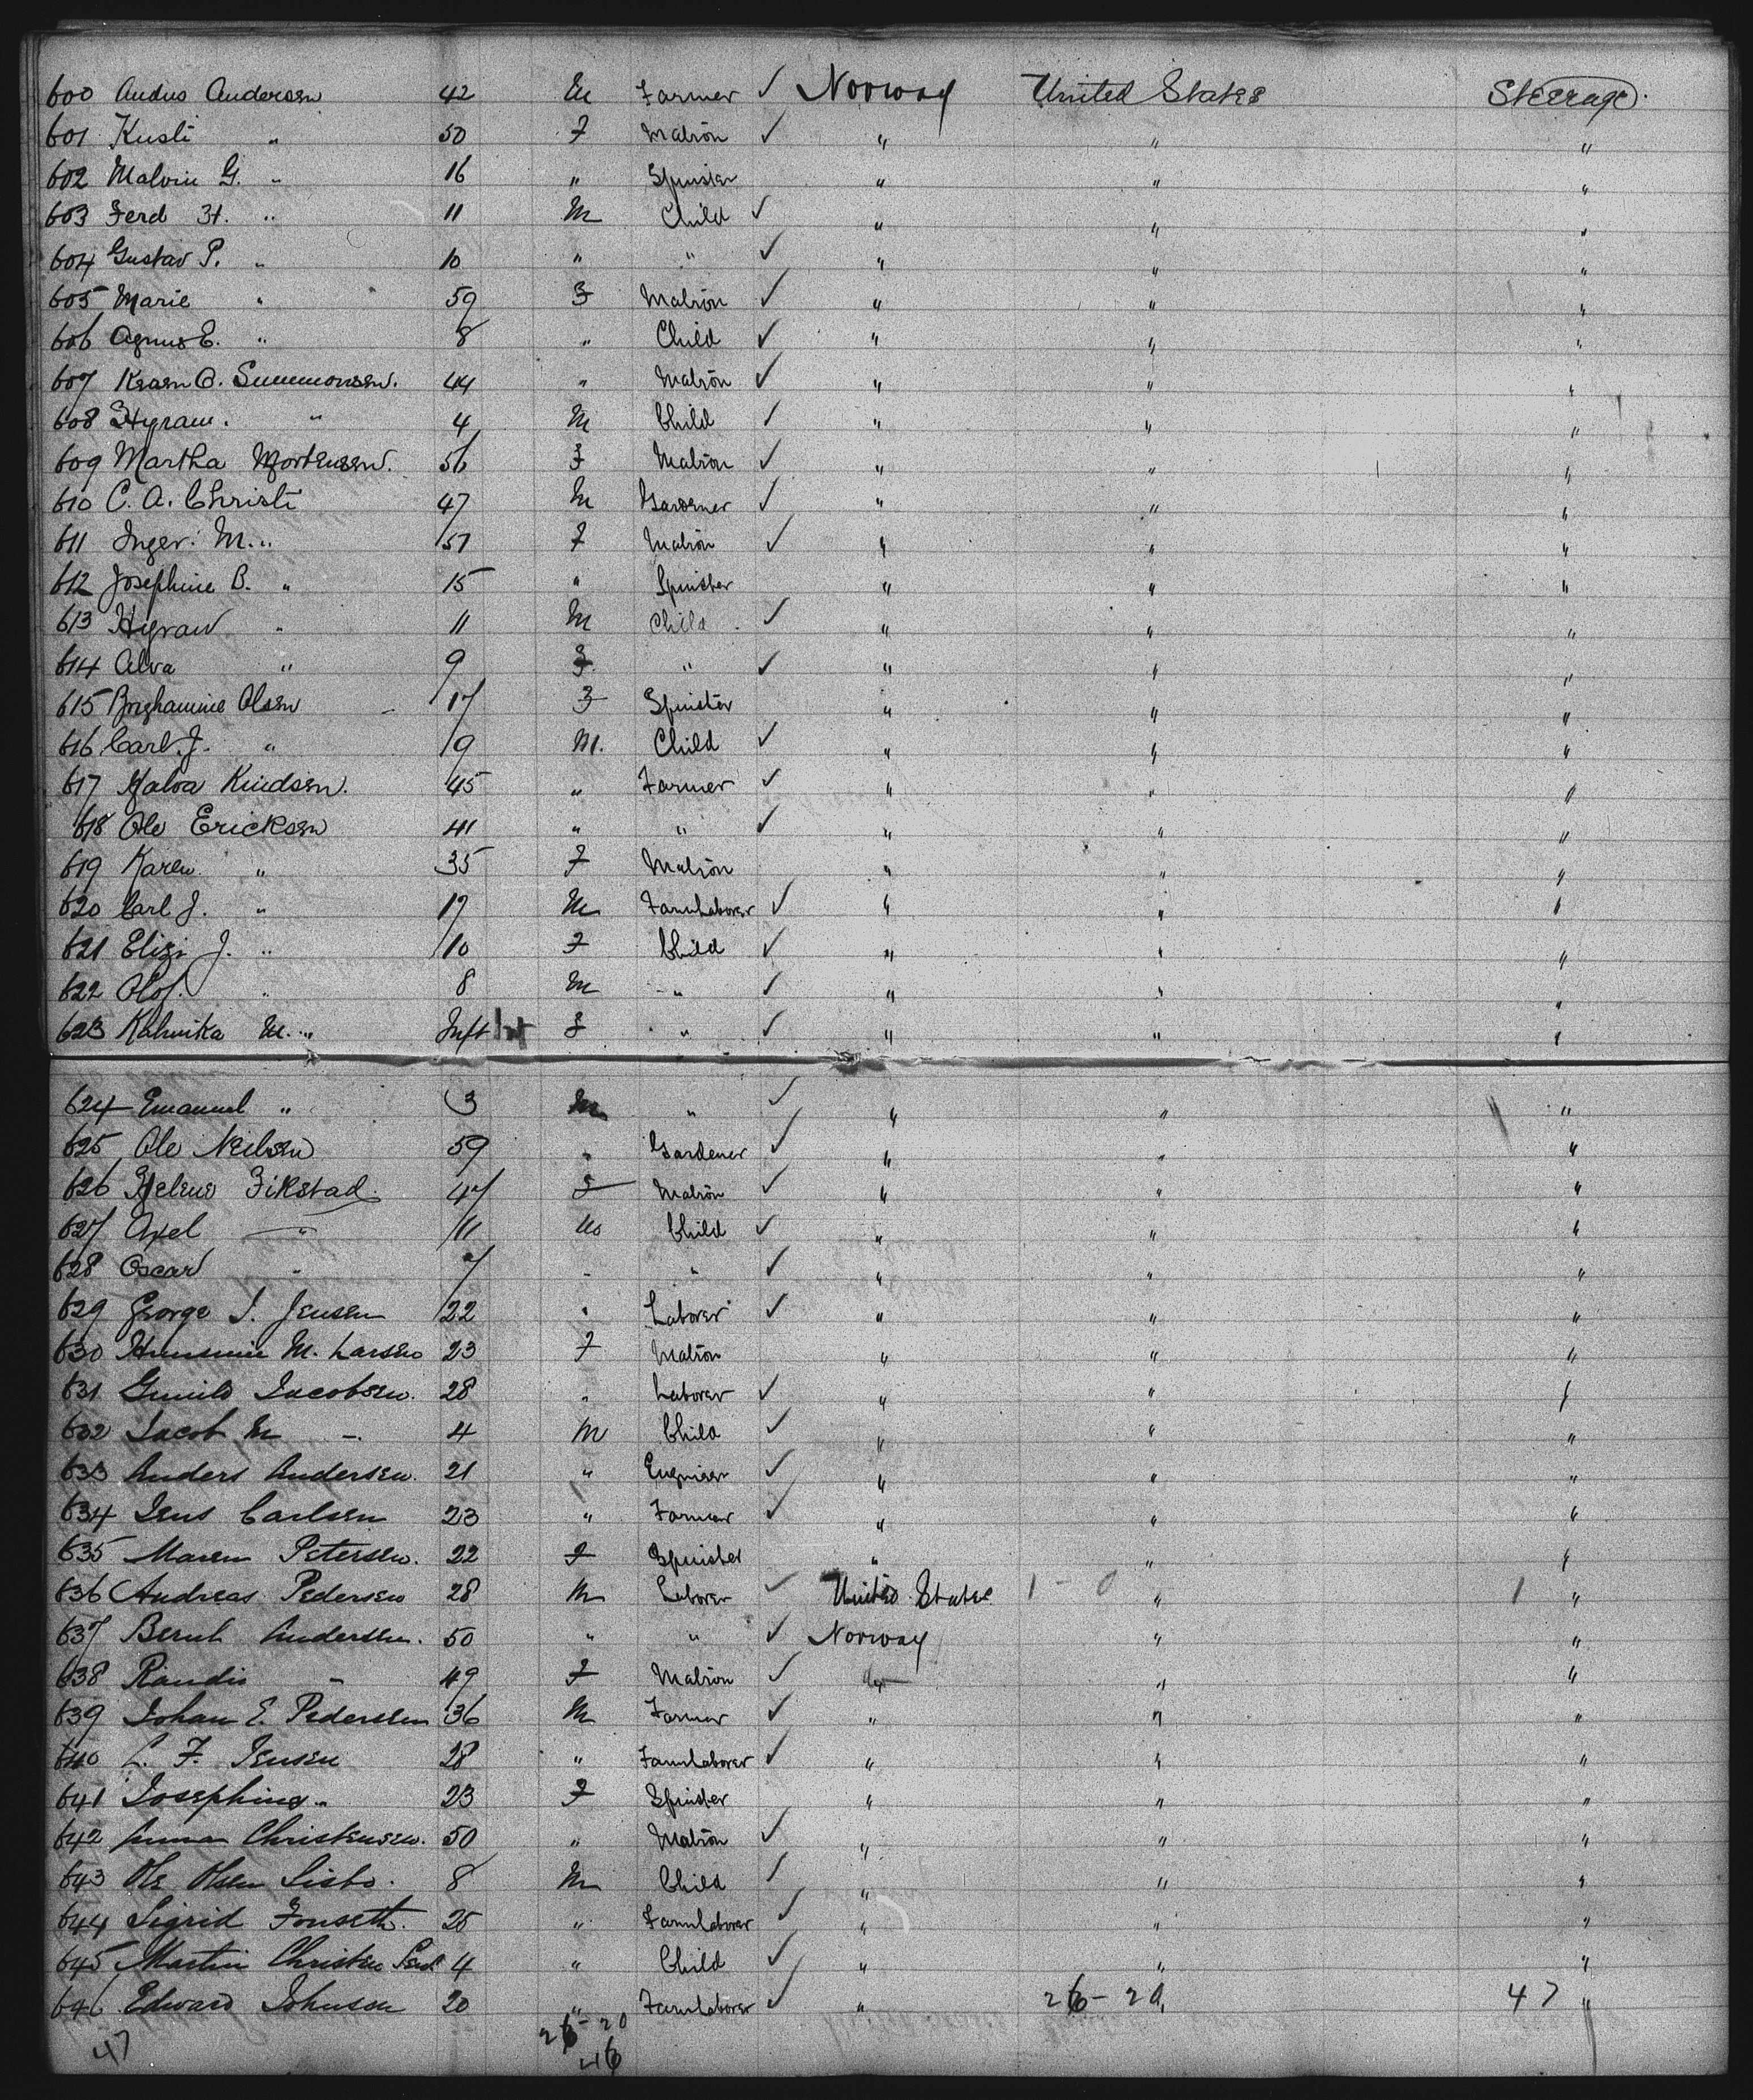 600 Andus Andersen 42 M Farmer ✓ Norway United States Steerage
601 Kusti " 50 F Matron ✓ " " "
602 Malvin G. " 16 " Spinster " " "
603 Ferd H. " 11 M Child ✓ " " "
604 Gustav P. " 10 " " ✓ " " "
605 Marie " 59 F Matron ✓ " " "
606 Agnus E. " 8 " Child ✓ " " "
607 Karen O. Summonsen. 44 " Matron ✓ " " "
608 Hyram. " 4 M Child ✓ " " "
609 Martha Mortensen. 56 F Matron ✓ " " "
610 C. A. Christi 47 M Gardener ✓ " " "
611 Inger M. " 51 F Matron ✓ " " "
612 Josephine B. " 15 " Spinster " " "
613 Hyram " 11 M Child ✓ " " "
614 Alva " 9 F " ✓ " " "
615 Olsen 17 F Spinster " " "
616 Carl J. " 9 M. Child ✓ " " "
617 Halva Knudsen. 45 " Farmer ✓ " " "
618 Ole Ericksen 41 " " ✓ " " "
619 Karen " 35 F Matron " " "
620 Carl J. " 17 M Farmlaborer ✓ " " "
621 Elizi J. " 10 F Child ✓ " " "
622 Olof. " 8 M " ✓ " " "
623 M. " Inft F " ✓ " " "
624 Emanuel " 3 M " ✓ " " "
625 Ole Neilsen 59 " Gardener ✓ " " "
626 Helene Fikstad 47 F Matron ✓ " " "
627 Axel " 11 M Child ✓ " " "
628 Oscar " 7 " " ✓ " " "
629 George J. Jensen 22 " Laborer ✓ " " "
630 M. Larsen 23 F Matron " " "
631 Gunild Jacobsen. 28 " Laborer ✓ " " "
632 Jacob M " 4 M Child ✓ " " "
633 Anders Andersen. 21 " Engineer ✓ " " "
634 Jens Carlsen 23 " Farmer ✓ " " "
635 Maren Petersen. 22 F Spinster " " "
636 Andreas Pedersen 28 M Laborer ✓ United States 1 - 0 " 1 "
637 Bernh Andersen. 50 " " ✓ Norway " "
638 Randis " 49 F Matron ✓ " " "
639 Johan E. Pedersen 36 M Farmer ✓ " " "
640 L. F. Jensen 28 " Farmlaborer ✓ " " "
641 Josephine " 23 F Spinster " " "
642 Anna Christensen. 50 " Matron ✓ " " "
643 Ole Olsen Lisbo. 8 M Child ✓ " " "
644 Sigrid Fonseth. 25 " Farmlaborer ✓ " " "
645 Martin Christen 4 " Child ✓ " " "
646 Edward Johnson 20 " Farmlaborer ✓ " 26-20 " 47 "
47 26-20
46